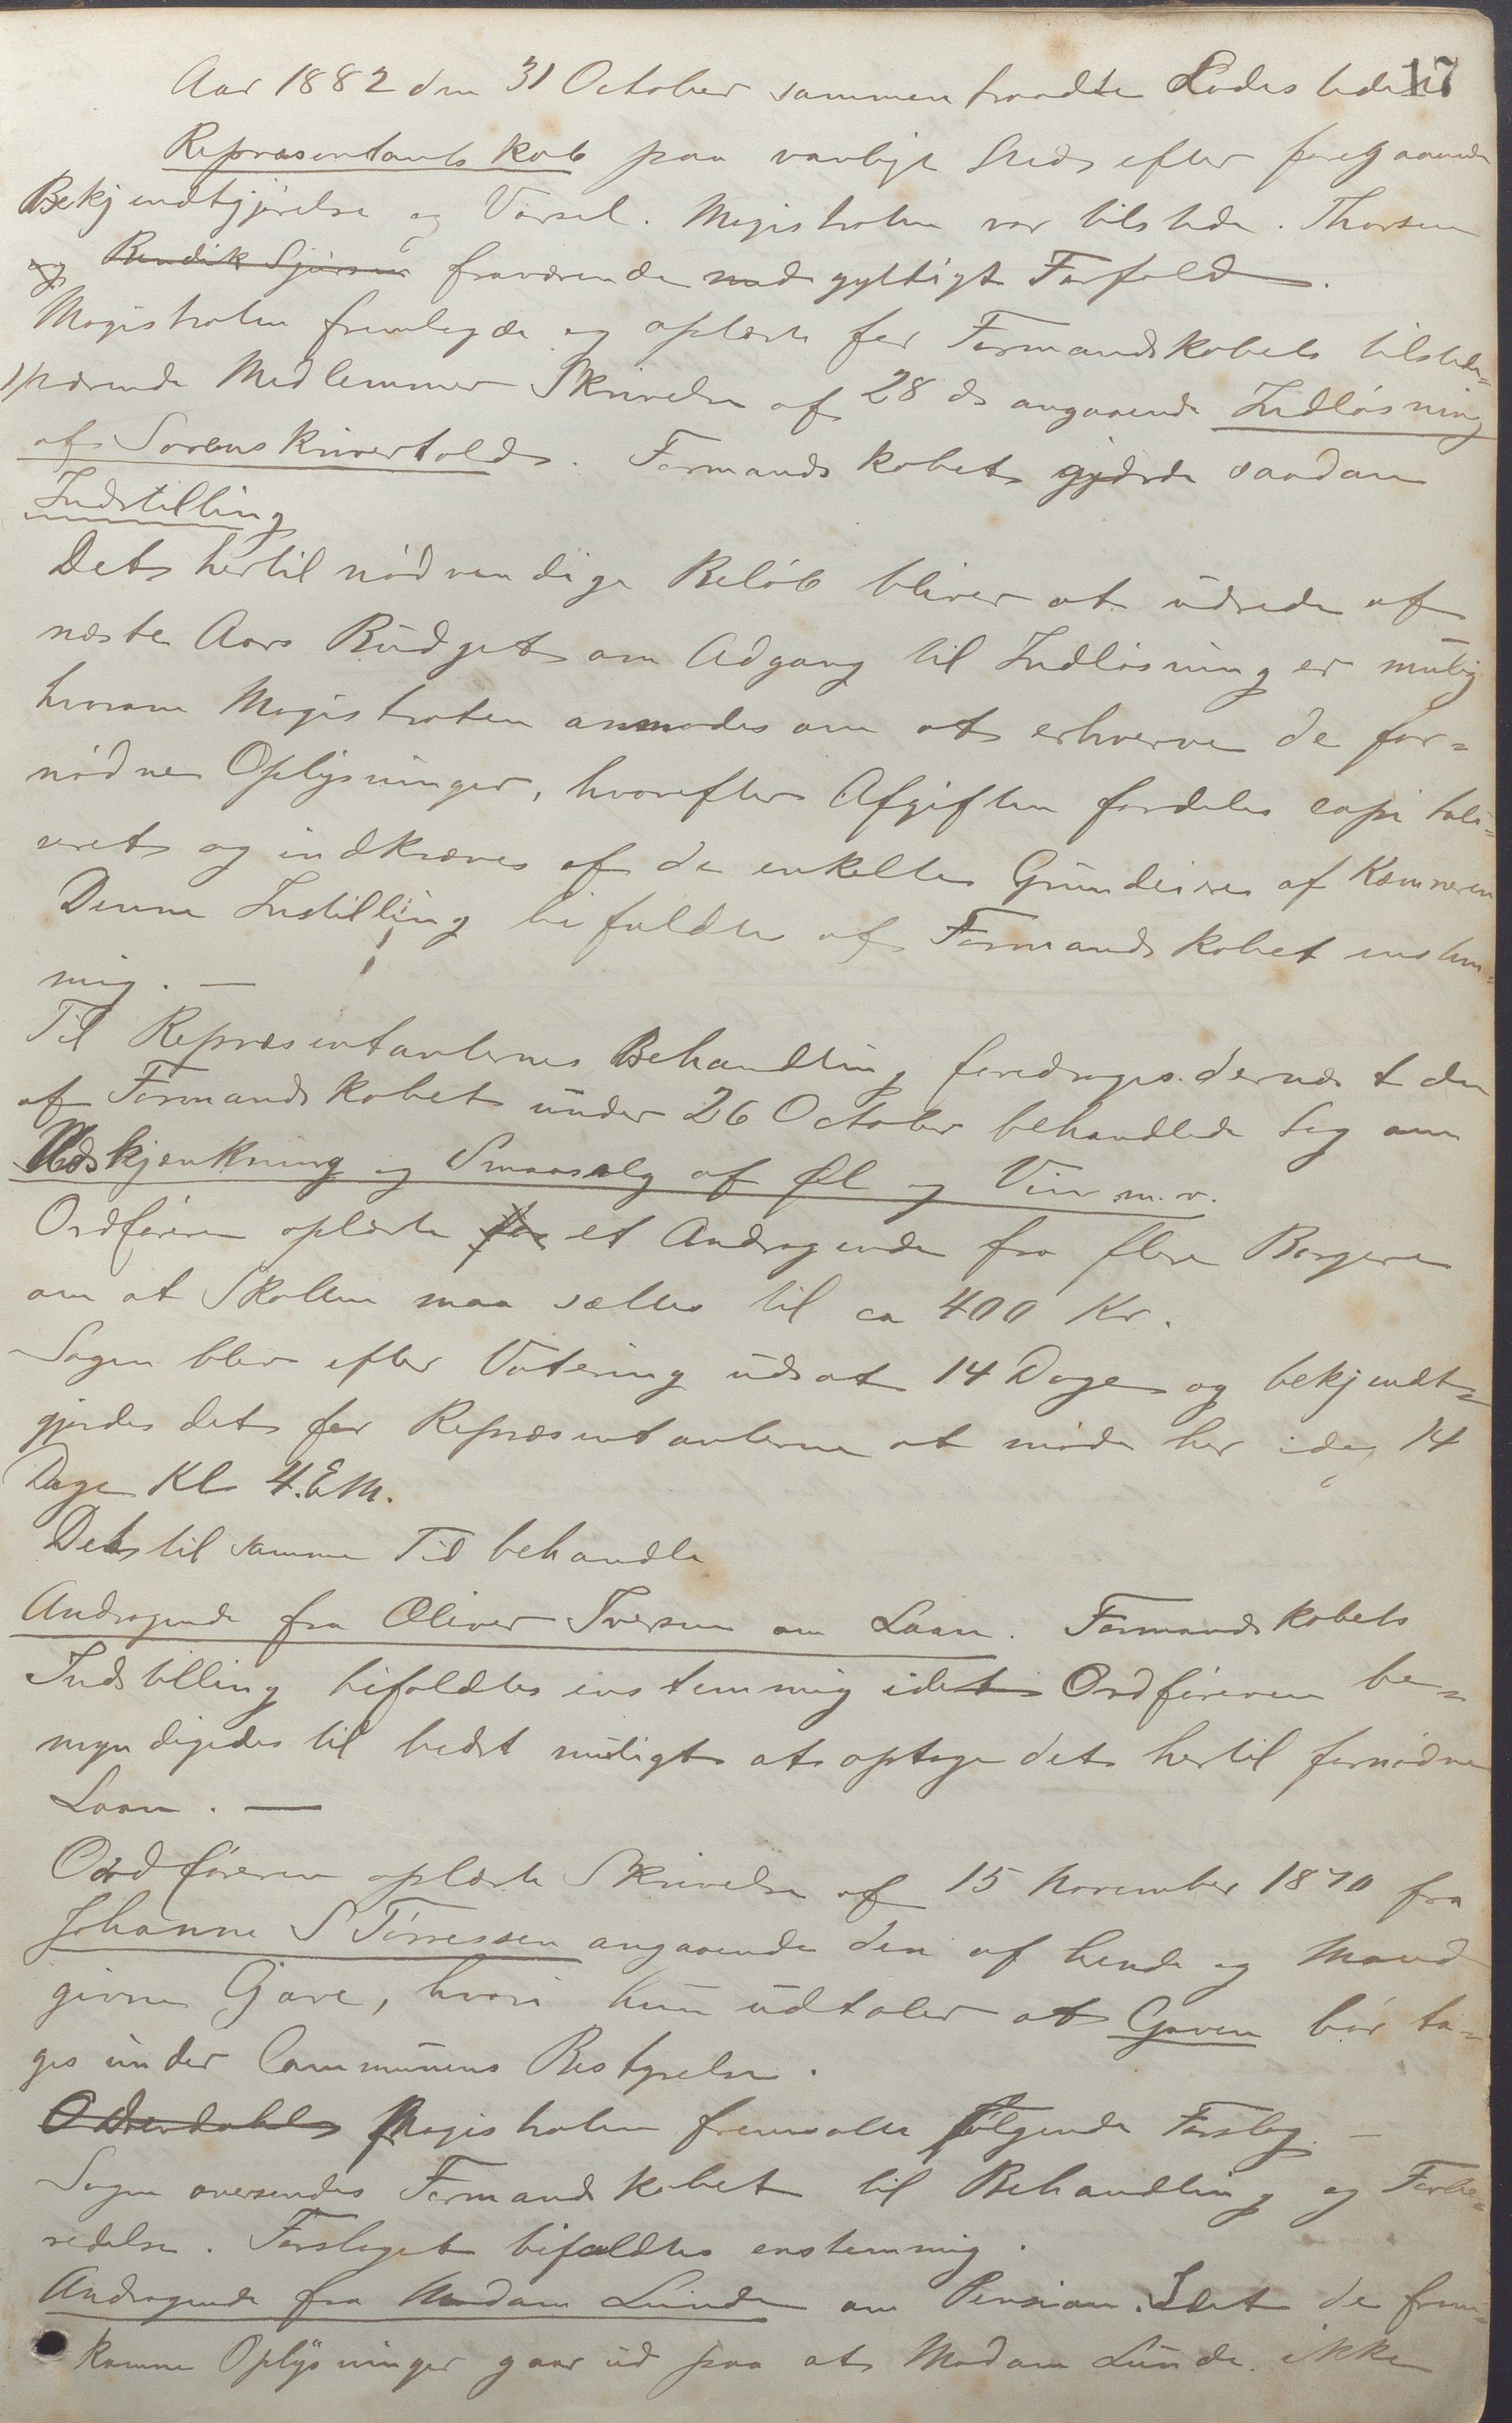 17
Aar 1882 den 31 October sammentraadte Ladestedets
Repræsentantskab paa vanlige Sted efter foregaaende
Bekjendtgjørelse og Varsel. Magistraten var tilstede. Thorsen
og Bendik Sjursen fraværende med gyltigt Forfald.
Magistraten fremlagde og oplæste for Formandskabets tilstede-
værende Medlemmer Skrivelse af 28 ds angaaende Indløsning
af Sorenskrivertold. Formandskabet gjorde saadan
Indstilling
Det hertil nødvendige Beløb bliver at udrede af
næste Aars Budget om Adgang til Indløsning er mulig
hvorom Magistraten anmodes om at erhverve de for=
nødne Oplysninger, hvorefter Afgiften fordeles capitali-
seret og indkræves af de enkelte Grundeiere af Kæmneren
Denne Instilling bifaldtes af Formandskabet enstem=
mig. —
Til Repræsentanternes Behandling foredroges dernæst den
af Formandskabet under 26 October behandlede Sag om
Udskjænkning og Smaasalg af Øl og Vin m. v.
Ordføren oplæste for et Andragende fra flere Borgere
om at Skatten maa sættes til ca 400 Kr.
Sagen blev efter Votering udsat 14 Dage og bekjendt=
gjordes det for Repræsentanterne at møde her idag 14
Dage Kl 4. E.M.
Det til samme Tid behandle
Andragende fra Oliver Iversen om Laan. Formandskabets
Indstilling bifaldtes enstemmig idet Ordføreren be=
myndigedes til bedst muligt at optage det hertil fornødne
Laan. —
Ordføreren oplæste Skrivelse af 15 November 1870 fra
Johanne S Tørressen angaaende den af hende og Mand
givne Gave, hvori hun udtaler at Gaven bør ta=
ges under Communens Bestyrelse.
Magistraten fremsatte følgende Forslag. —
Sagen oversendes Formandskabet til Behandling og Forbe=
redelse. Forslaget bifaldtes enstemmig.
Andragende fra Madam Lunde om Pension. Idet de frem=
komne Oplysninger gaar ud paa at Madam Lunde ikke